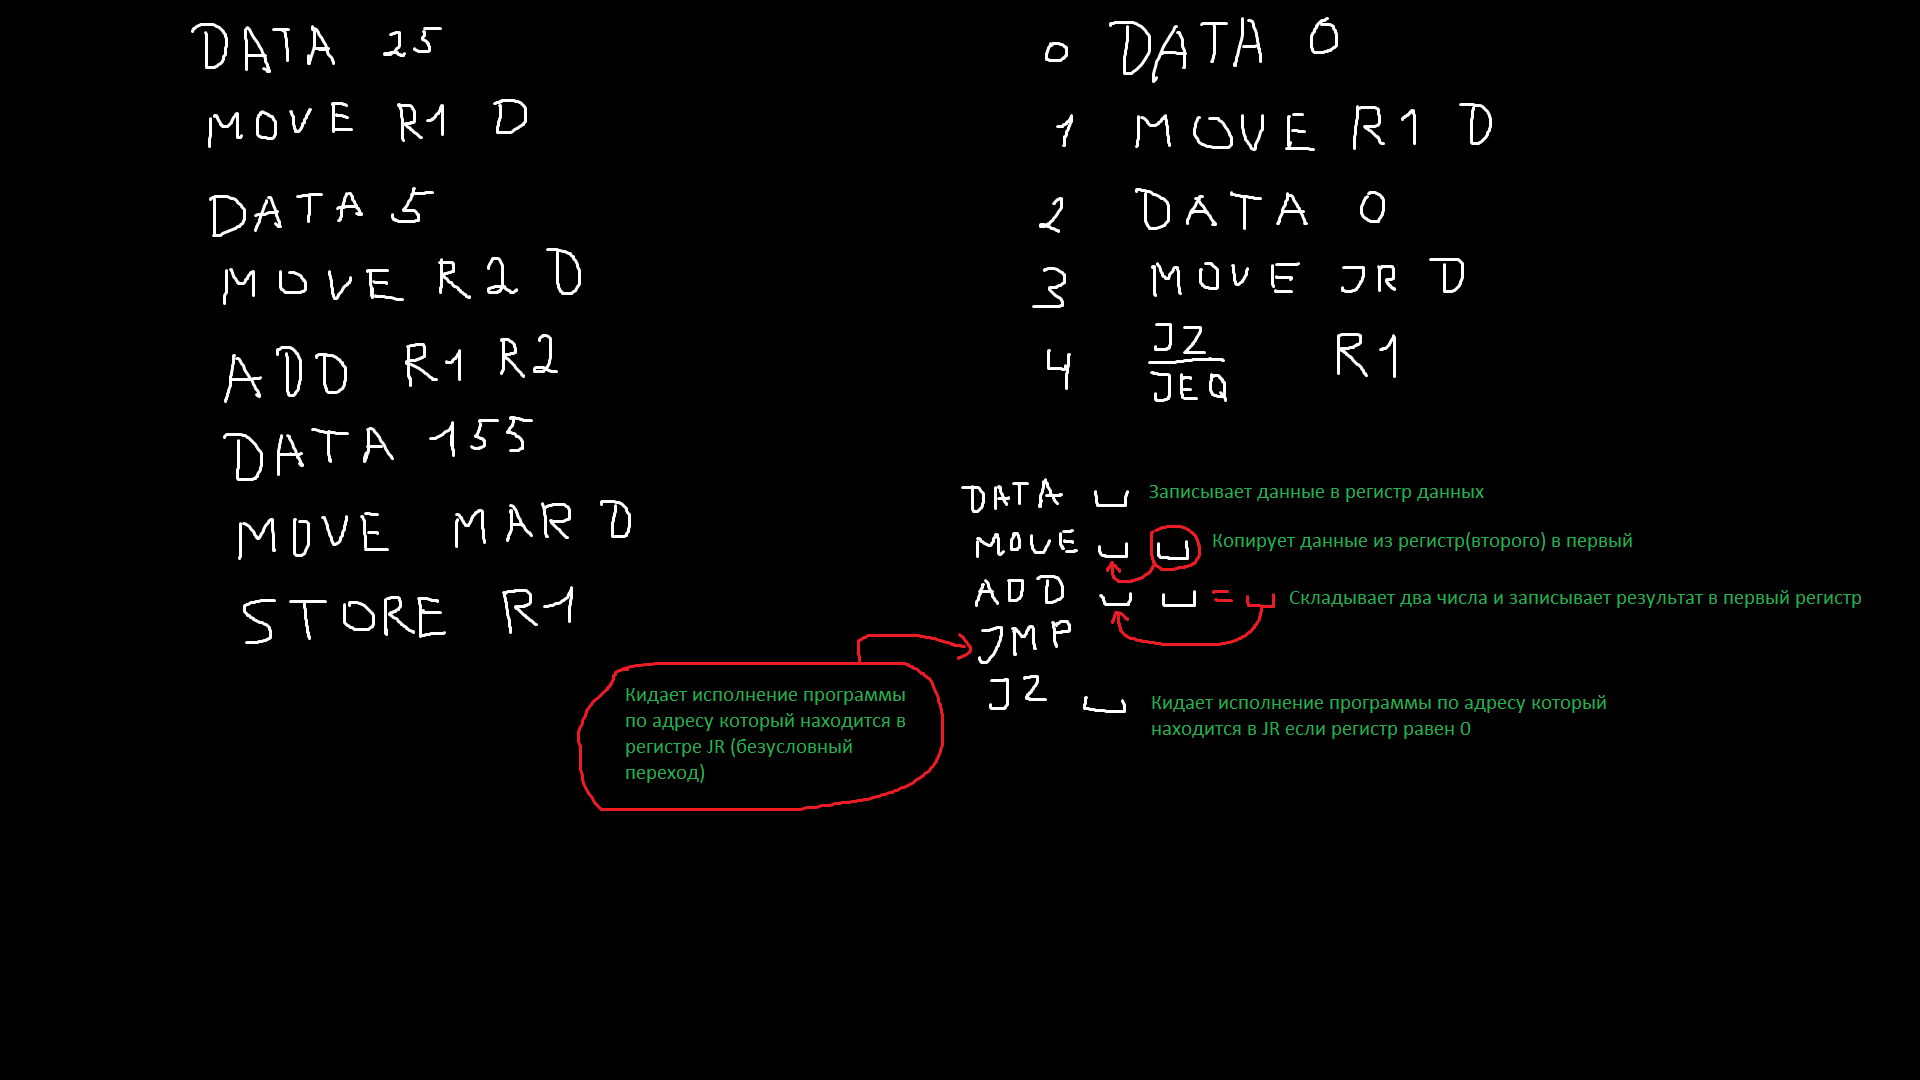 DATA 25
MOVE R1 D
DATA 5
MOVE R2 D
ADD R1 R2
DATA 155
MOVE MAR D
STORE R1
0 DATA 0
1 MOVE R1 D
2 DATA 0
3 MOVE JR D
4 JZ R1
JEQ
DATA Записывает данные в регистр данных
MOVE Копирует данные из регистр(второго) в первый
ADD = Складывает два числа и записывает результат в первый регистр
JMP
Кидает исполнение программы
по адресу который находится в
регистре JR (безусловный
переход)
JZ Кидает исполнение программы по адресу который
находится в JR если регистр равен 0